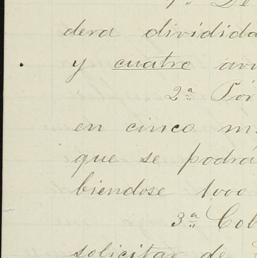 1ª De
dera dividida
y cuatro avi
2ª Tór
en cinco mi
que se podrá
biendose 1000
3ª Col
solicitar de